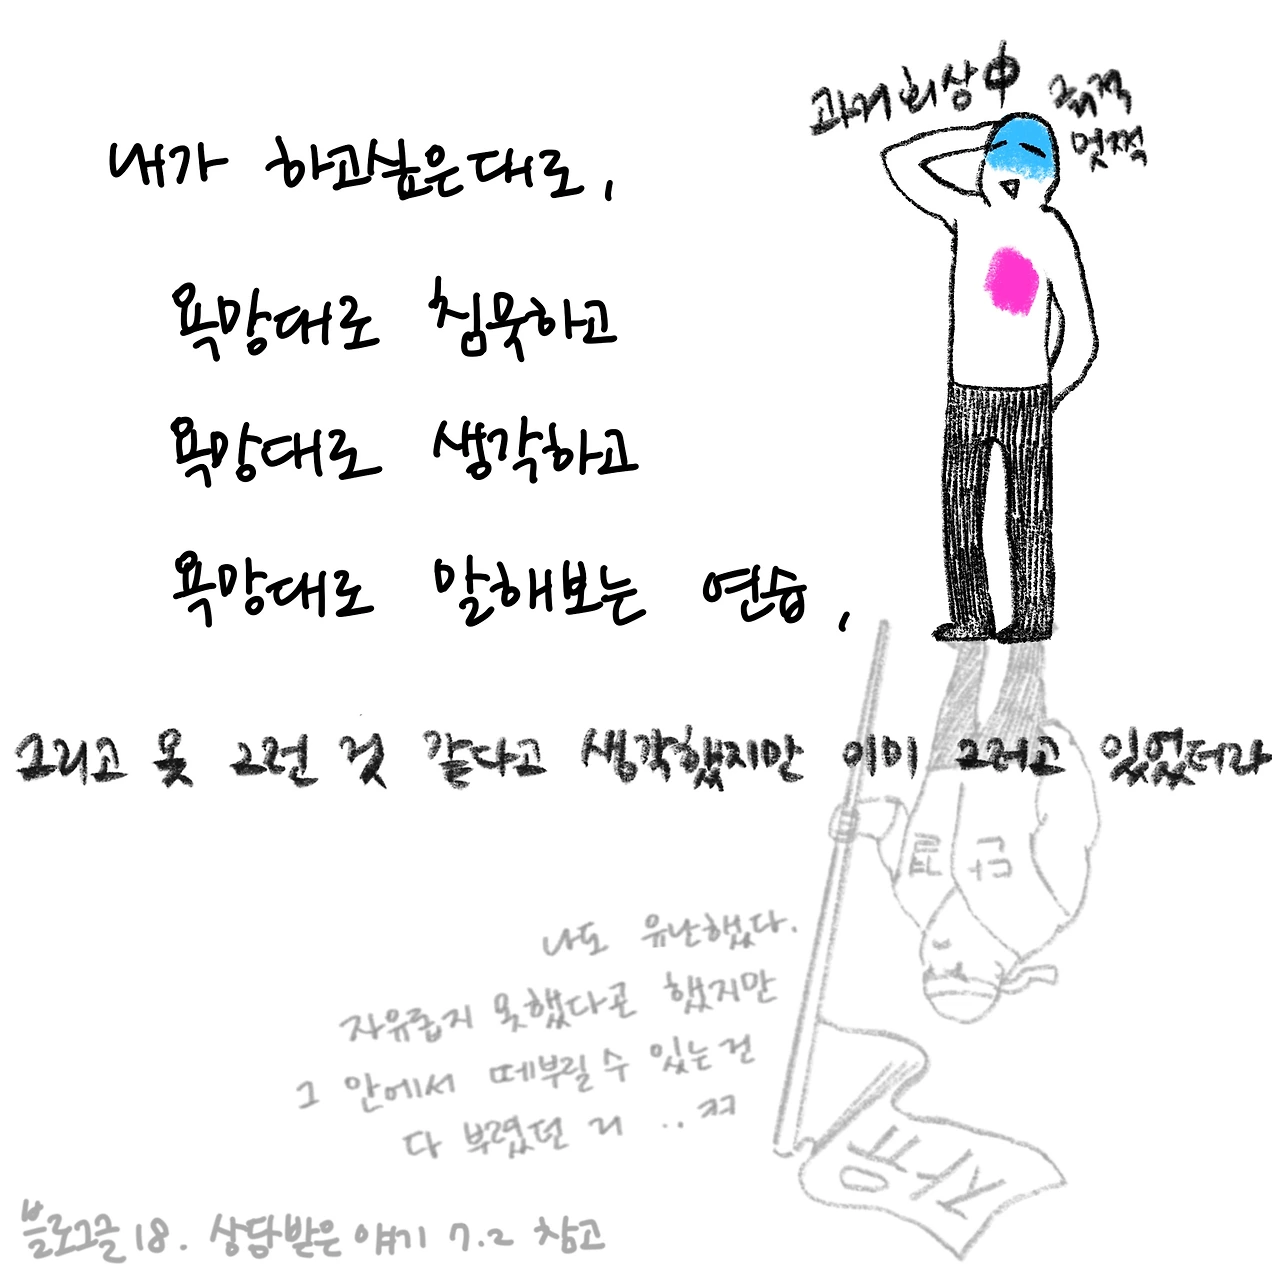 과거회상中 긁적
멋쩍
내가 하고싶은대로,
욕망대로 침묵하고
욕망대로 생각하고
욕망대로 말해보는 연습,
그리고 못 그런 것 같다고 생각했지만 이미 그러고 있었더라
투쟁
나도 유난했다.
자유롭지 못했다곤 했지만
그 안에서 떼부릴 수 있는 건
다 부렸던 거 .. ㅋㅋ
자유
블로그글 18. 상담받은 얘기 7.2 참고